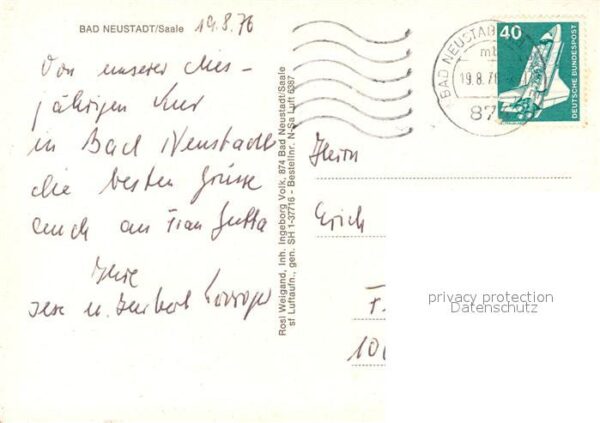 BAD NEUSTADT/Saale 19.8.76
Von unserer dies-
jährigen Kur
in Bad Neustadt
die besten Grüsse
auch an Frau Jutta
Ihre
u. Herbert
Rosl Weigand, Inh. Ingeborg Volk, 874 Bad Neustadt/Saale
sf Luftaufn., gen. SH 1-37716 - Bestellnr. N-Sa Luft 6387
BAD NEUSTADT
19.8.76
87
40
DEUTSCHE BUNDESPOST
Herrn
Erich
privacy protection
Datenschutz